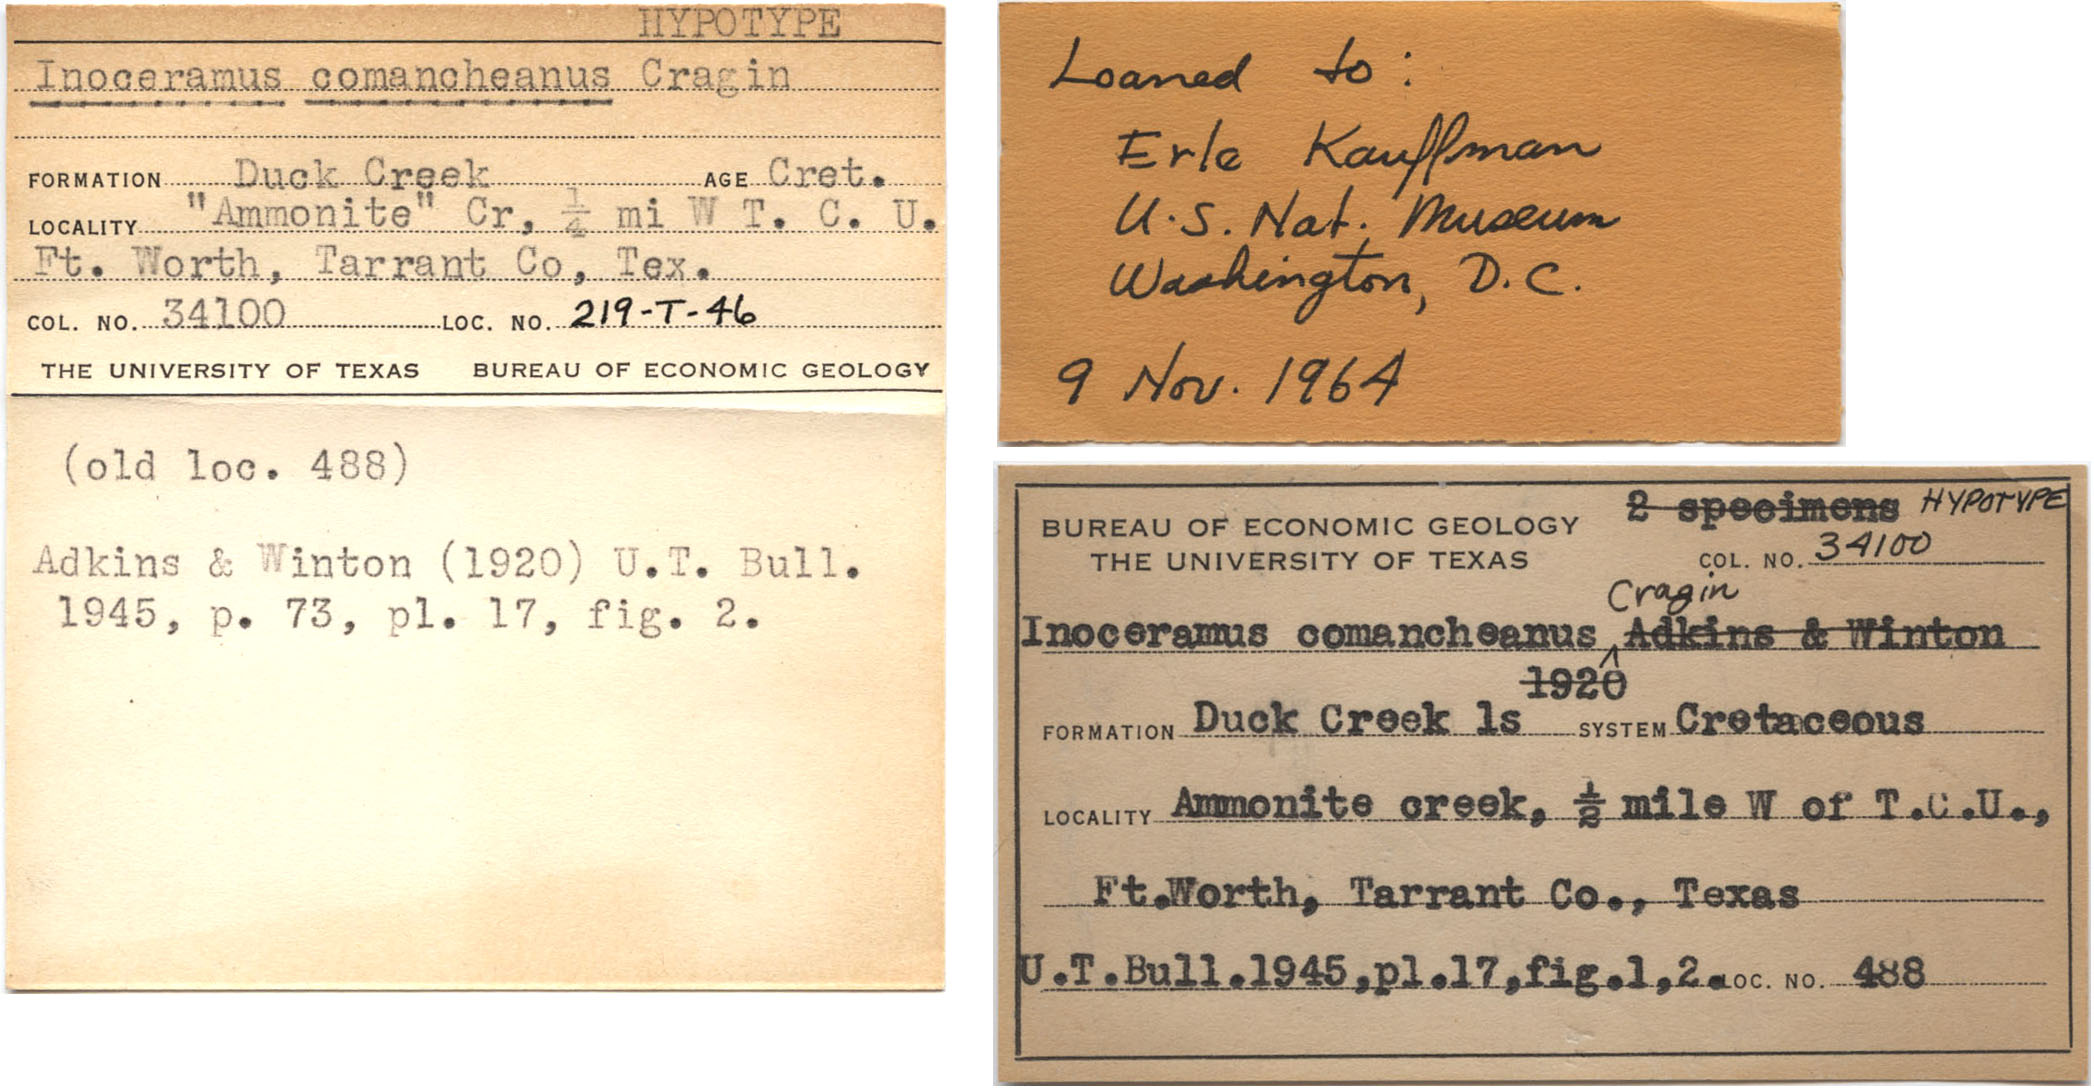 HYPOTYPE
Inoceramus comancheanus Cragin
FORMATION Duck Creek AGE Cret.
LOCALITY "Ammonite" Cr, 1/4 mi W T. C. U.
Ft. Worth, Tarrant Co, Tex.
COL. NO. 34100 LOC. NO. 219-T-46
THE UNIVERSITY OF TEXAS BUREAU OF ECONOMIC GEOLOGY
(old loc. 488)
Adkins & Winton (1920) U.T. Bull.
1945, p. 73, pl. 17, fig. 2.
Loaned to:
Erle Kauffman
U.S. Nat. Museum
Washington, D.C.
9 Nov. 1964
2 specimens HYPOTYPE
BUREAU OF ECONOMIC GEOLOGY
THE UNIVERSITY OF TEXAS COL. NO. 34100
Cragin
Inoceramus comancheanus Adkins & Winton
1920
FORMATION Duck Creek ls SYSTEM Cretaceous
LOCALITY Ammonite creek, 1/2 mile W of T.C.U.,
Ft.Worth, Tarrant Co., Texas
U.T.Bull.1945,pl.17,fig.1,2. LOC. NO. 488